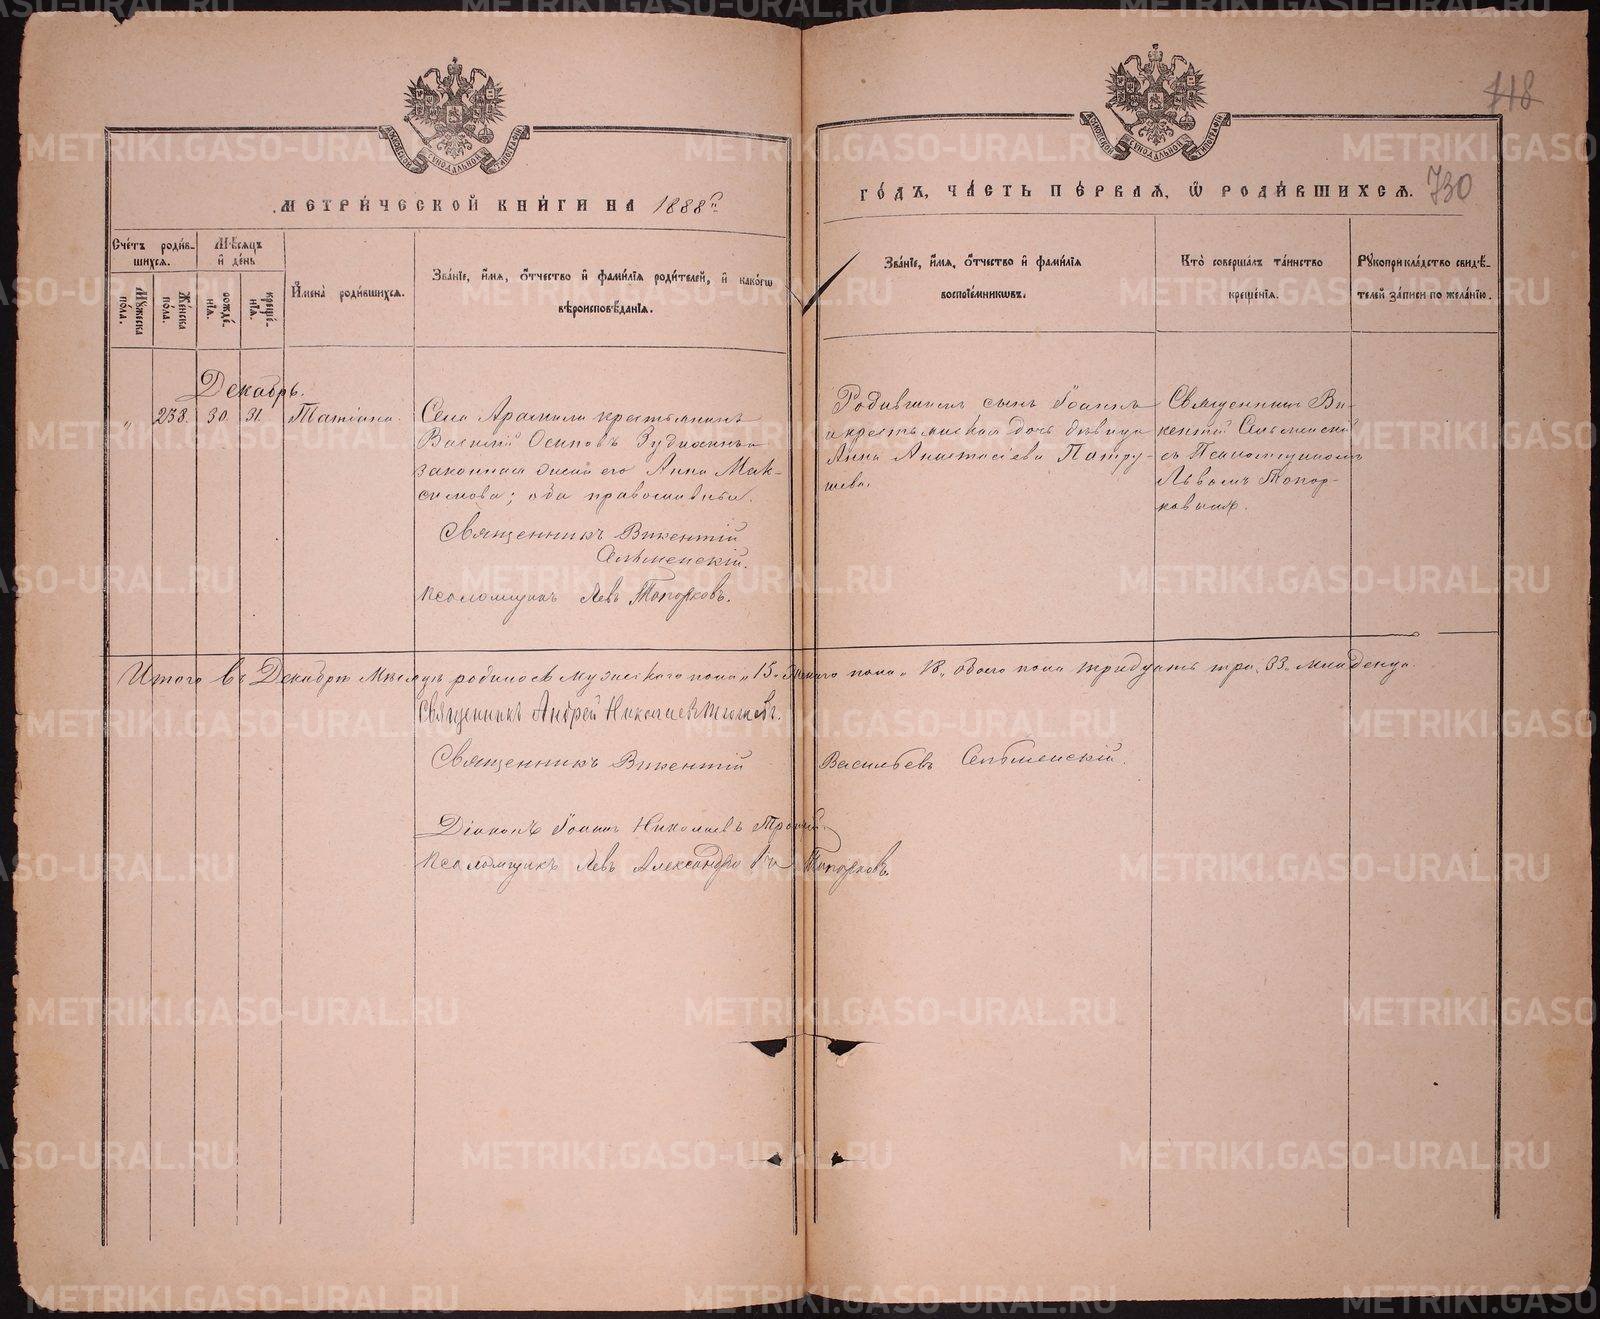 718
730
МОСКОВСКОЙ СѴНОДАЛЬНОЙ ТИПОГРАФІИ
МОСКОВСКОЙ СѴНОДАЛЬНОЙ ТИПОГРАФІИ
МЕТРИ́ЧЕСКОЙ КНИ́ГИ НА 1888й
ГО́ДЪ, ЧА́СТЬ ПЕ́РВАЯ, Ѡ РОДИ́ВШИХСЯ.
Сче́тъ роди́в-
шихся.
Мѣ́сяцъ
и҆ де́нь
Мꙋ́жеска
по́ла.
Же́нска
по́ла.
рожде́-
нїя.
креще́-
нїя.
И҆мена̀ роди́вшихся.
Зва́нїе, и҆́мя, ѻ҆́тчество и҆ фами́лїя роди́телей, и҆ како́гѡ
вѣроисповѣ́данїя.
Зва́нїе, и҆́мя, ѻ҆́тчество и҆ фами́лїя
воспрїе́мникѡвъ.
Кто̀ соверша́лъ та́инство
креще́нїя.
Рꙋкоприкла́дство свидѣ́-
телей за́писи по жела́нїю.
Декабрь.
" 238. 30. 31. Татіана.
Села Арамили крестьянинъ
Василій Осиповъ
законная жена его Анна Мак-
симова; оба православные.
Священникъ Викентій
Сельменскій.
Псаломщикъ Левъ Топорковъ.
сынъ Іоаннъ
и крестьянская дочь девица
Анна Анастасіева Патру-
шева.
Священникъ Ви-
кентій Сельменскій
съ Псаломщикомъ
Львомъ Топор-
ковымъ.
Итого въ Декабрѣ Мѣсяцѣ родилось мужескаго пола "15" женскаго пола "18" обоего пола тридцать три 33 младенца.
Священникъ Андрей Николаевъ
Священникъ Викентій Васильевъ Сельменскій.
Діаконъ Іоаннъ Николаевъ
Псаломщикъ Левъ Александровъ Топорковъ.
METRIKI.GASO-URAL.RU